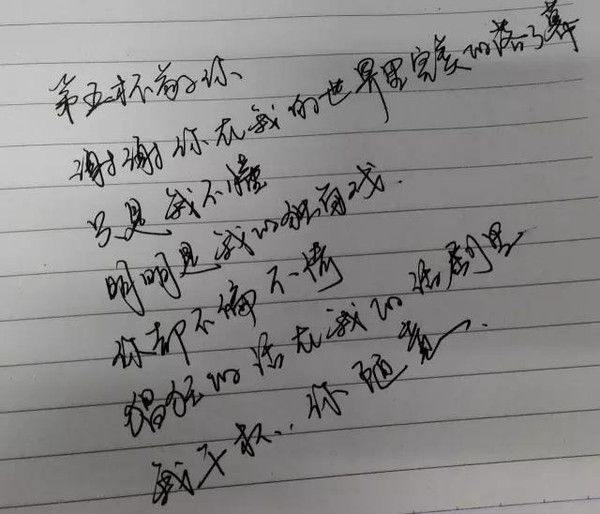 第五杯敬你
谢谢你在我的世界里完美的落了幕
只是我不懂
明明是我的独角戏.
你却不偏不倚
猖狂的活在我的话剧里
我干杯..你随意.